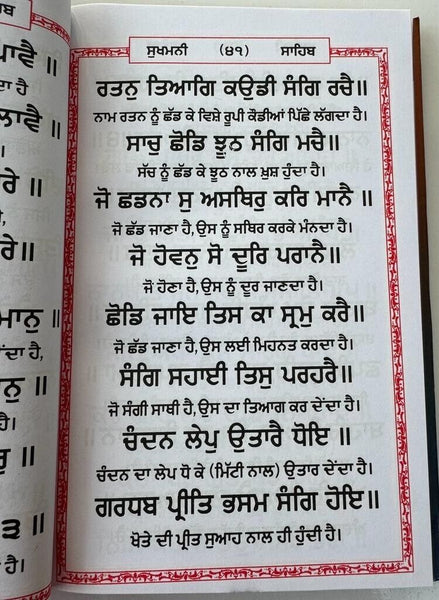 ਬ
ਪਾਵੈ ॥
ਦਾ ਹੈ
ਲਾਵੈ ॥
ਰੇ ॥
ਰੇ॥
ਮਾਨੁ ॥
ਦਾ ਹੈ,
ਨੁ ॥
ਰੁ ॥
੩ ॥
ਹੈ।
ਸੁਖਮਨੀ (੪੧) ਸਾਹਿਬ
ਰਤਨੁ ਤਿਆਗਿ ਕਉਡੀ ਸੰਗਿ ਰਚੈ॥
ਨਾਮ ਰਤਨ ਨੂੰ ਛੱਡ ਕੇ ਵਿਸ਼ੇ ਰੂਪੀ ਕੌਡੀਆਂ ਪਿੱਛੇ ਲੱਗਦਾ ਹੈ।
ਸਾਚੁ ਛੋਡਿ ਝੂਠ ਸੰਗਿ ਮਚੈ॥
ਸੱਚ ਨੂੰ ਛੱਡ ਕੇ ਝੂਠ ਨਾਲ ਖ਼ੁਸ਼ ਹੁੰਦਾ ਹੈ।
ਜੋ ਛਡਨਾ ਸੁ ਅਸਥਿਰੁ ਕਰਿ ਮਾਨੈ ॥
ਜੋ ਛੱਡ ਜਾਣਾ ਹੈ,ਉਸ ਨੂੰ ਸਥਿਰ ਕਰਕੇ ਮੰਨਦਾ ਹੈ।
ਜੋ ਹੋਵਨੁ ਸੋ ਦੂਰਿ ਪਰਾਨੈ॥
ਜੋ ਹੋਣਾ ਹੈ,ਉਸ ਨੂੰ ਦੂਰ ਜਾਣਦਾ ਹੈ।
ਛੋਡਿ ਜਾਇ ਤਿਸ ਕਾ ਸ੍ਰਮੁ ਕਰੈ॥
ਜੋ ਛੱਡ ਜਾਣਾ ਹੈ,ਉਸ ਲਈ ਮਿਹਨਤ ਕਰਦਾ ਹੈ।
ਸੰਗਿ ਸਹਾਈ ਤਿਸੁ ਪਰਹਰੈ॥
ਜੋ ਸੰਗੀ ਸਾਥੀ ਹੈ,ਉਸ ਦਾ ਤਿਆਗ ਕਰ ਦੇਂਦਾ ਹੈ।
ਚੰਦਨ ਲੇਪੁ ਉਤਾਰੈ ਧੋਇ ॥
ਚੰਦਨ ਦਾ ਲੇਪ ਧੋ ਕੇ (ਮਿੱਟੀ ਨਾਲ) ਉਤਾਰ ਦੇਂਦਾ ਹੈ।
ਗਰਧਬ ਪ੍ਰੀਤਿ ਭਸਮ ਸੰਗਿ ਹੋਇ॥
ਖੋਤੇ ਦੀ ਪ੍ਰੀਤ ਸੁਆਹ ਨਾਲ ਹੀ ਹੁੰਦੀ ਹੈ।